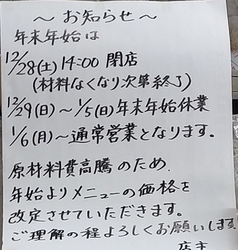 ～お知らせ～
年末年始は
12/28(土)14:00 閉店
(材料なくなり次第終了)
12/29(日)～1/5(日)年末年始休業
1/6(月)～通常営業となります。
原材料費高騰のため
年始よりメニューの価格を
改定させていただきます。
ご理解の程よろしくお願いします
店主